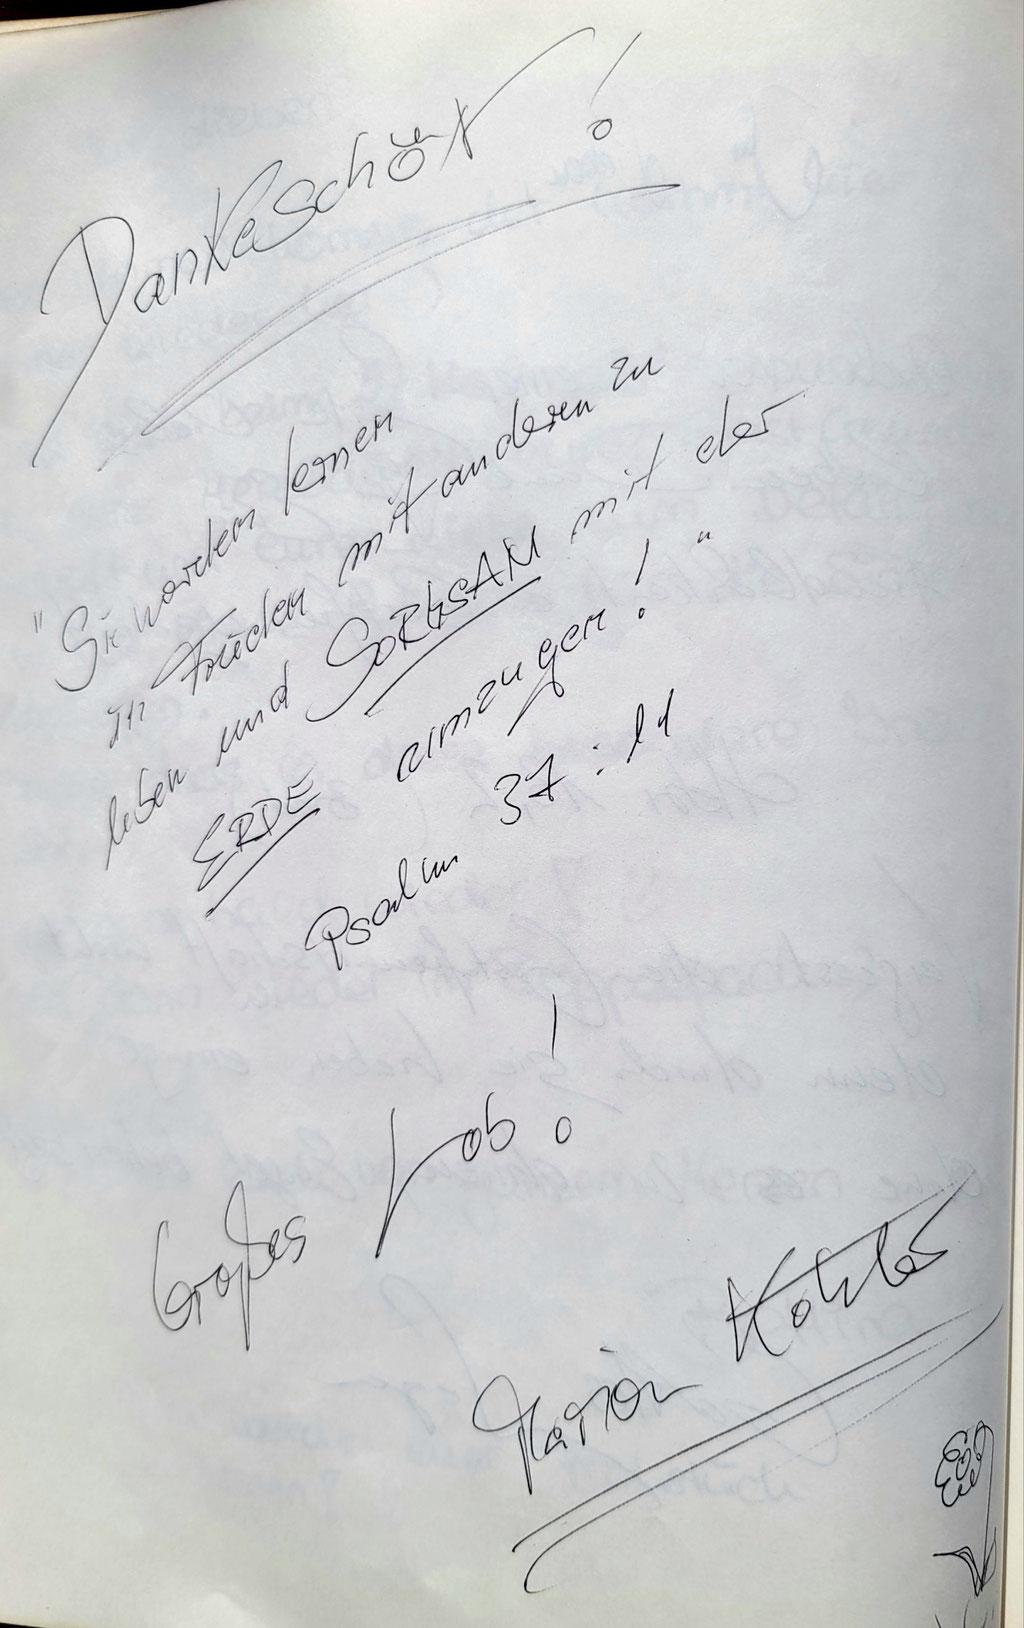 Dankeschön!
"Sie werden lernen
in Frieden mit anderen zu
leben und SORGSAM mit der
ERDE umzugen! "
Psalm 37:11
Großes Lob!
Marion